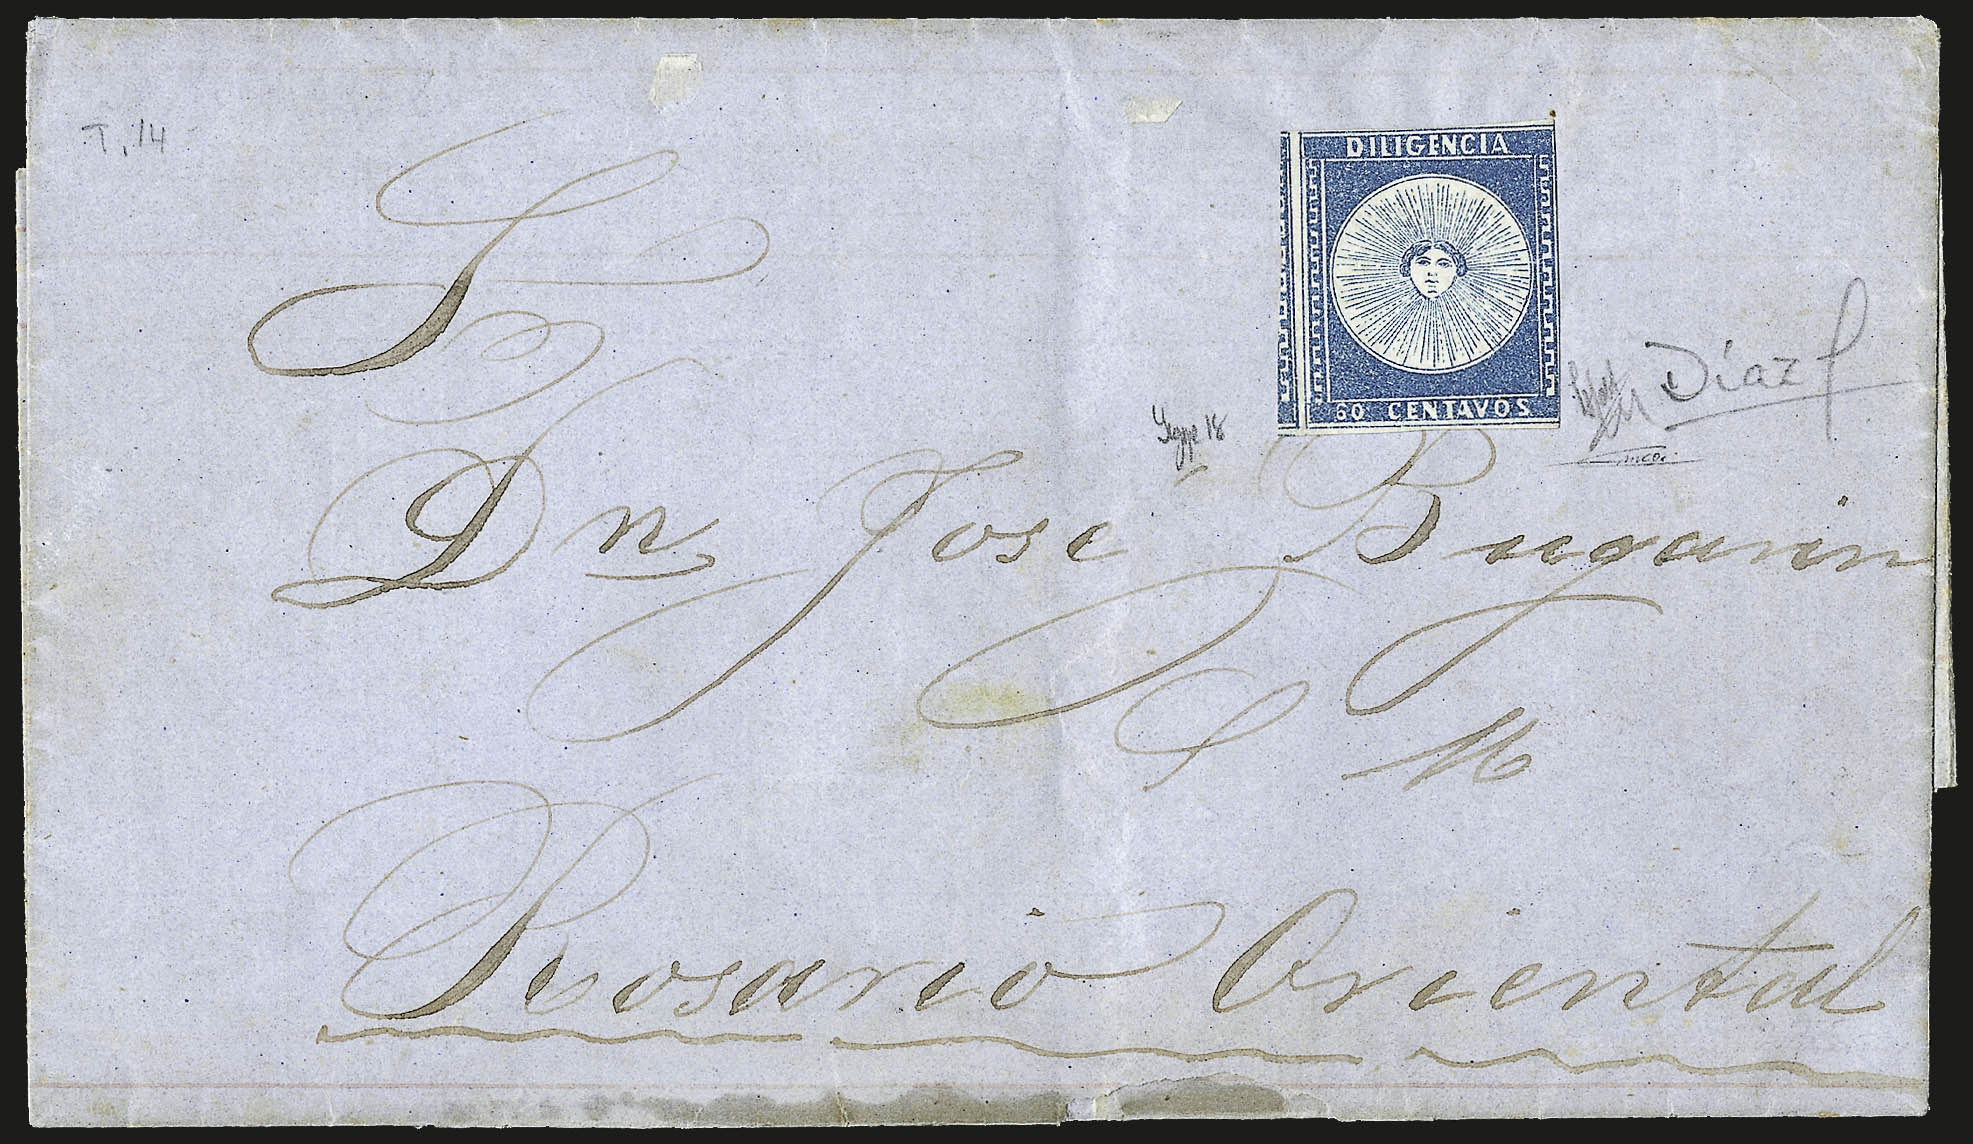 T. 14
DILIGENCIA
60 CENTAVOS
Díaz
S
Dn Jose Bugarin
Rosario Oriental